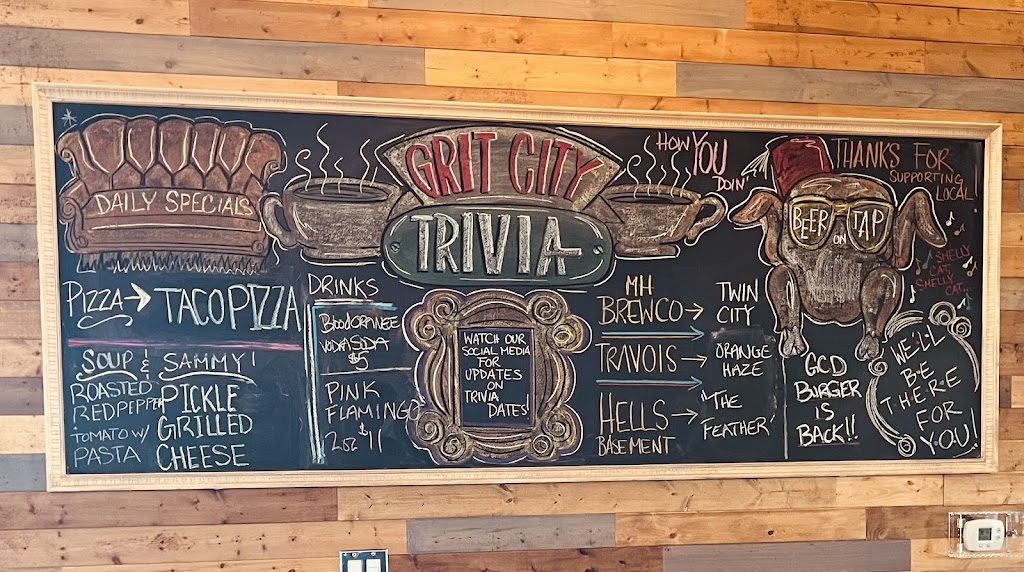 DAILY SPECIALS
PIZZA → TACO PIZZA
SOUP &
ROASTED
RED PEPPER
TOMATO W/
PASTA
SAMMY!
PICKLE
GRILLED
CHEESE
GRIT CITY
TRIVIA
DRINKS
BLOOD ORANGE
VODKA SODA
$5
PINK
FLAMINGO
2oz $11
WATCH OUR
SOCIAL MEDIA
FOR
UPDATES
ON
TRIVIA
DATES!
HOW YOU
DOIN'
MH
BREWCO → TWIN
CITY
TRAVOIS → ORANGE
HAZE
HELLS → "THE
BASEMENT FEATHER"
THANKS FOR
SUPPORTING
LOCAL
BEER ON TAP
SMELLY
CAT,
SMELLY
CAT...
GCD
BURGER
IS
BACK!!
WE'LL
B•E
T•H•E•R•E
FOR
YOU!